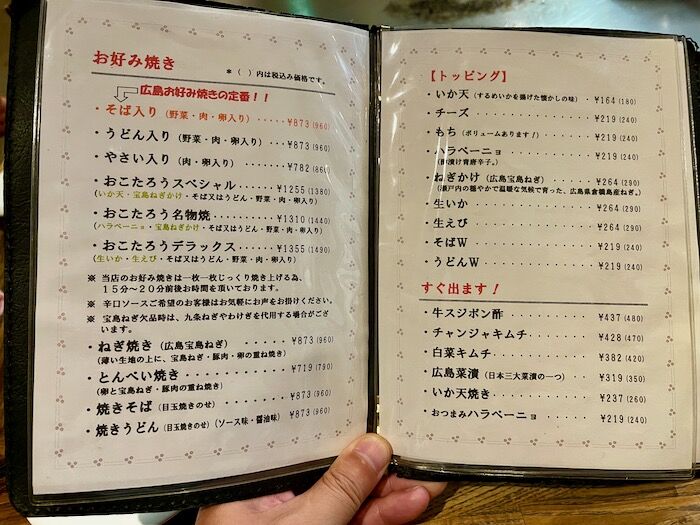 お好み焼き
＊（ ）内は税込み価格です。
広島お好み焼きの定番！！
・そば入り（野菜・肉・卵入り）・・・・・¥873(960)
・うどん入り（野菜・肉・卵入り）・・・・¥873(960)
・やさい入り（肉・卵入り）・・・・・・・¥782(860)
・おこたろうスペシャル・・・・・・¥1255(1380)
（いか天・宝島ねぎかけ・そば又はうどん・野菜・肉・卵入り）
・おこたろう名物焼・・・・・・・・¥1310(1440)
（ハラペーニョ・宝島ねぎかけ・そば又はうどん・野菜・肉・卵入り）
・おこたろうデラックス・・・・・・¥1355(1490)
（生いか・生えび・そば又はうどん・野菜・肉・卵入り）
※ 当店のお好み焼きは一枚一枚じっくり焼き上げる為、
１５分〜２０分前後お時間を頂いております。
※ 辛口ソースご希望のお客様はお気軽にお声をお掛けください。
※ 宝島ねぎ欠品時は、九条ねぎやわけぎを代用する場合がござ
います。
・ねぎ焼き（広島宝島ねぎ）・・・・・・¥873(960)
（薄い生地の上に、宝島ねぎ・豚肉・卵の重ね焼き）
・とんぺい焼き・・・・・・・・・・・¥719(790)
（卵と宝島ねぎ・豚肉の重ね焼き）
・焼きそば（目玉焼きのせ）・・・・・・¥873(960)
・焼きうどん（目玉焼きのせ）（ソース味・醤油味）¥873(960)
【トッピング】
・いか天（するめいかを揚げた懐かしの味）・¥164(180)
・チーズ・・・・・・・・・・・・・¥219(240)
・もち（ボリュームあります！）・・・・・¥219(240)
・ハラペーニョ・・・・・・・・・・¥219(240)
（酢漬け青唐辛子。）
・ねぎかけ（広島宝島ねぎ）・・・・・¥264(290)
（瀬戸内の穏やかで温暖な気候で育った、広島県倉橋島産ねぎ。）
・生いか・・・・・・・・・・・・・¥264(290)
・生えび・・・・・・・・・・・・・¥264(290)
・そばＷ・・・・・・・・・・・・・¥219(240)
・うどんＷ・・・・・・・・・・・・¥219(240)
すぐ出ます！
・牛スジポン酢・・・・・・・・・・¥437(480)
・チャンジャキムチ・・・・・・・・¥428(470)
・白菜キムチ・・・・・・・・・・・¥382(420)
・広島菜漬（日本三大菜漬の一つ）・・・¥319(350)
・いか天焼き・・・・・・・・・・・¥237(260)
・おつまみハラペーニョ・・・・・・¥219(240)